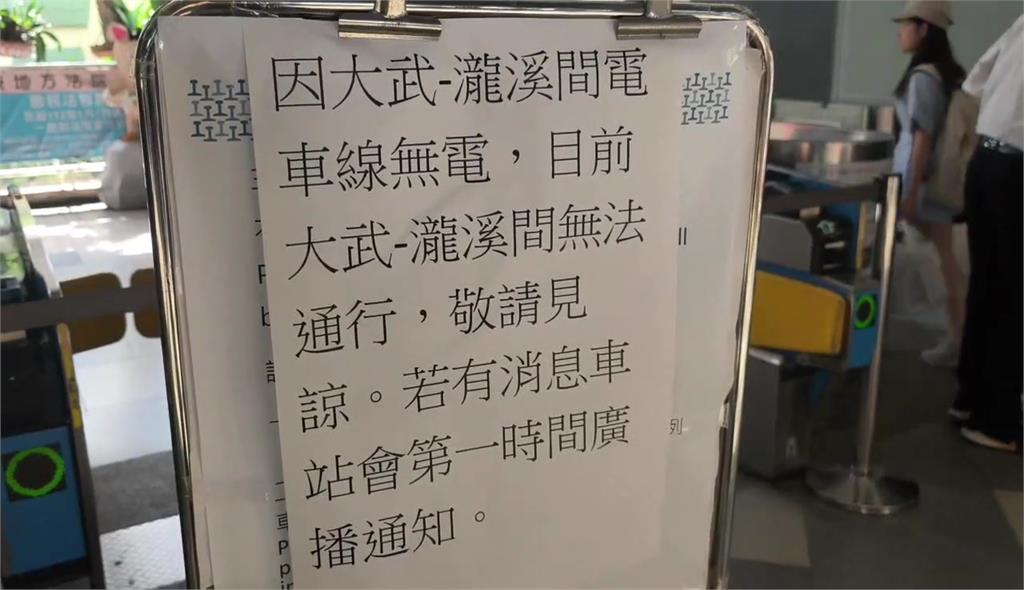 因大武-瀧溪間電
車線無電，目前
大武-瀧溪間無法
通行，敬請見
諒。若有消息車
站會第一時間廣
播通知。
地方法
列